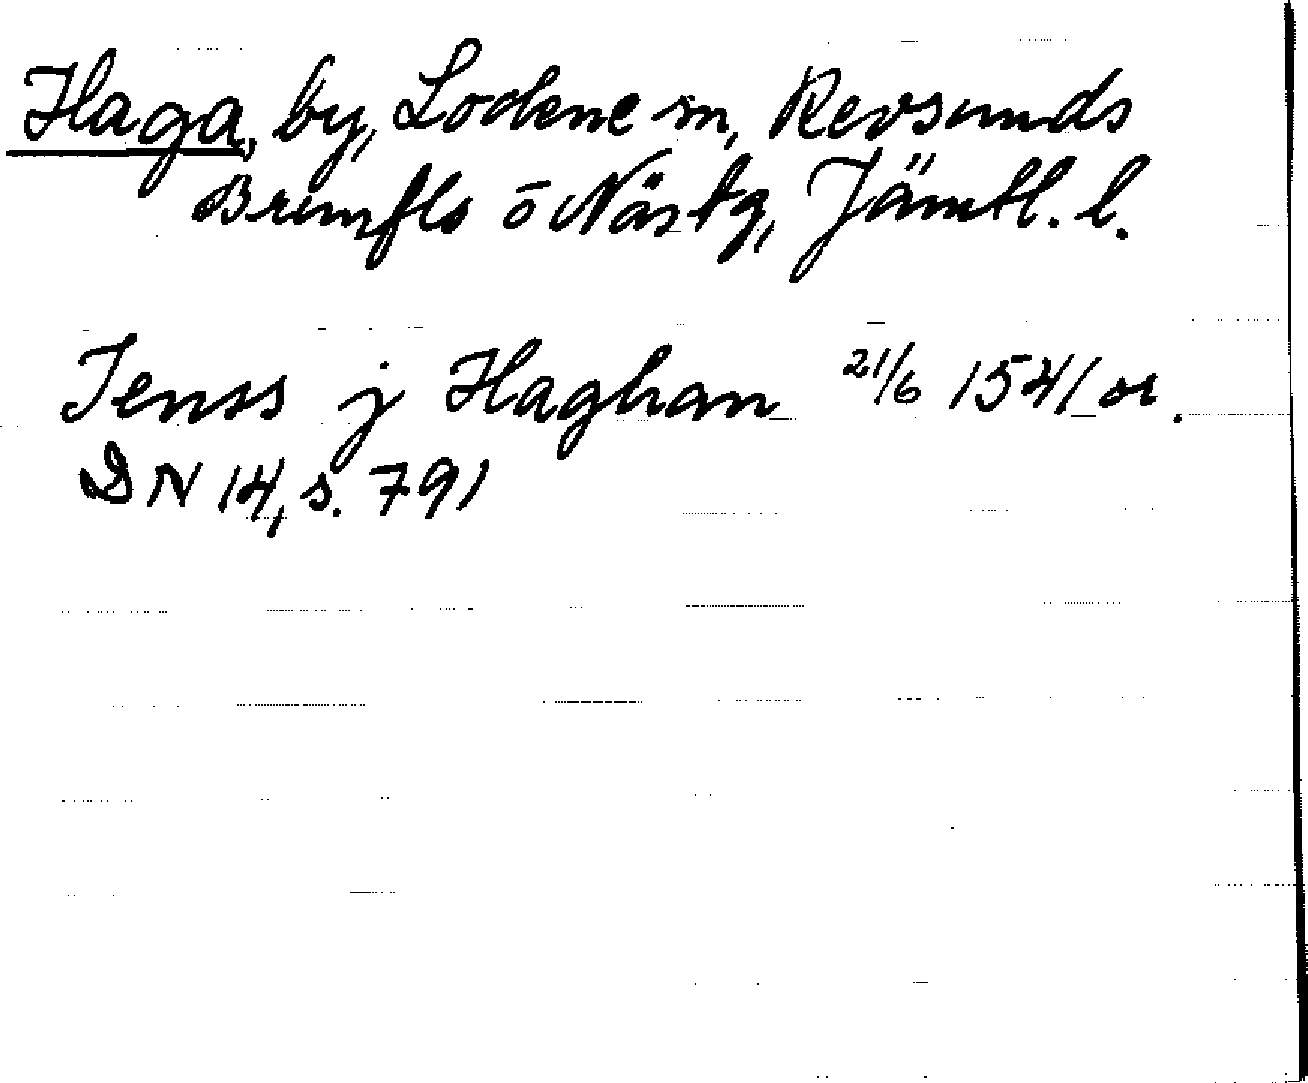 Haga, by, Lockne sn, Revsunds
Brunflo o Näs tg, Jämtl. l.
Jenss j Haghan 21/6 1541 or.
DN 14, s. 791